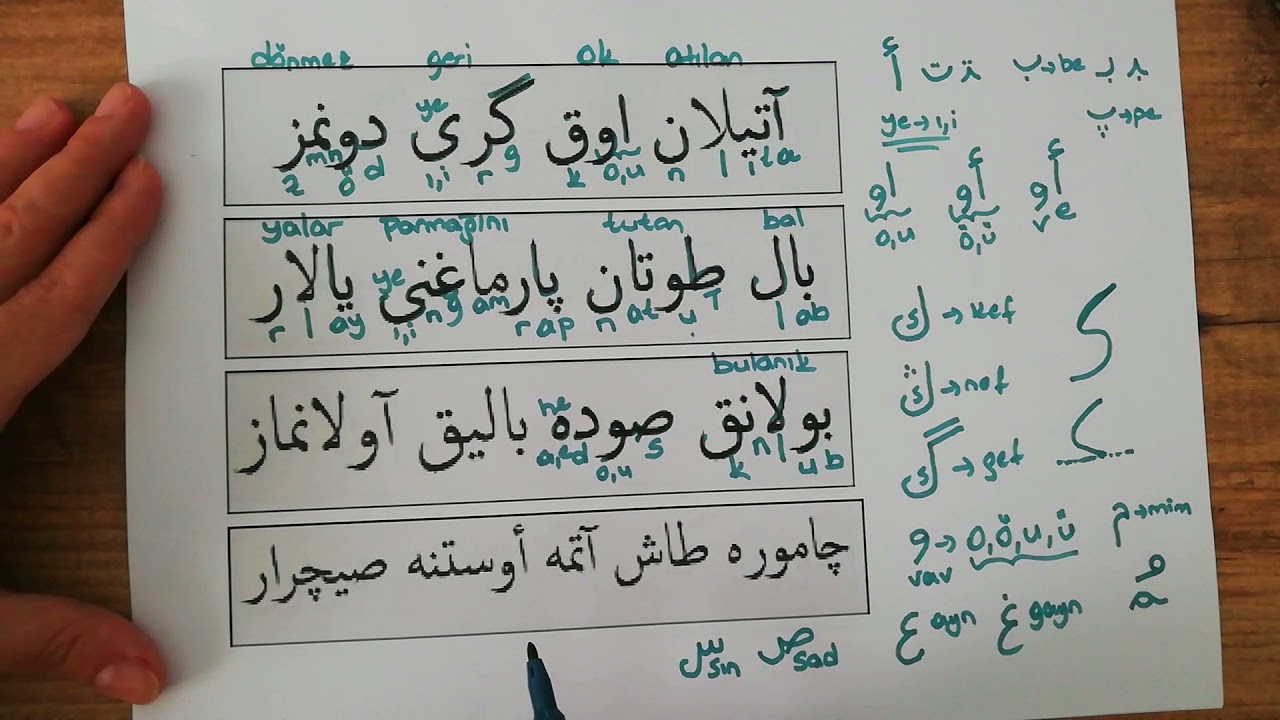 dönmez geri ok atılan
آتیلان اوق گری دونمز
ye
z mn ö d ı,i r g k o,u n l i ta
yalar parmağını tutan bal
بال طوتان پارماغنی یالار
ye
r l ay ı,i n g am r ap n at u T l ab
bulanık
بولانق صوده بالیق آولانماز
he
a,e d o,u s k n l u b
چاموره طاش آتمه أوستنه صیچرار
أ ت ب→be
ye→ı,i پ→pe
او أو أو
o,u ö,ü v e
ك→kef
ڭ→nef
گ→gef
و→o,ö,u,ü م→mim
vav
ع ayn غ gayn
س sin ص sad